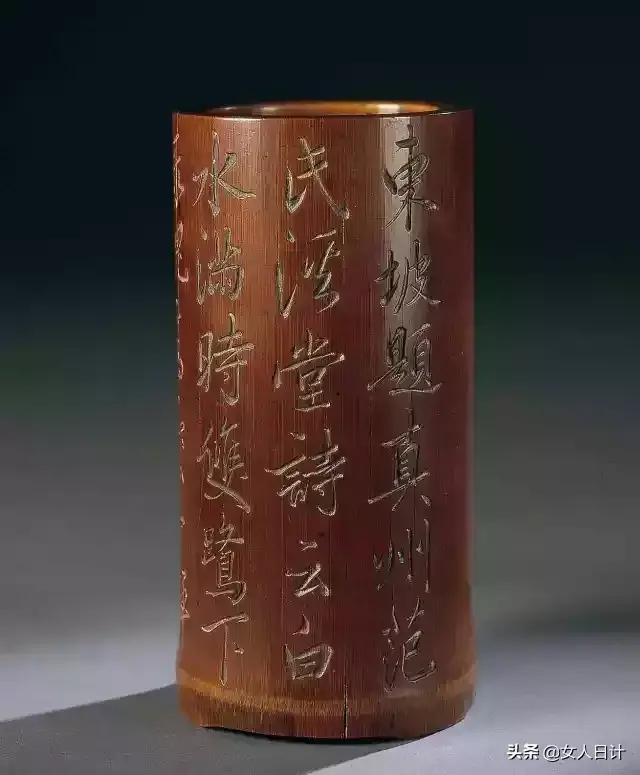 東坡題真州范
氏溪堂詩云白
水滿時雙鷺下
头条 @女人日计